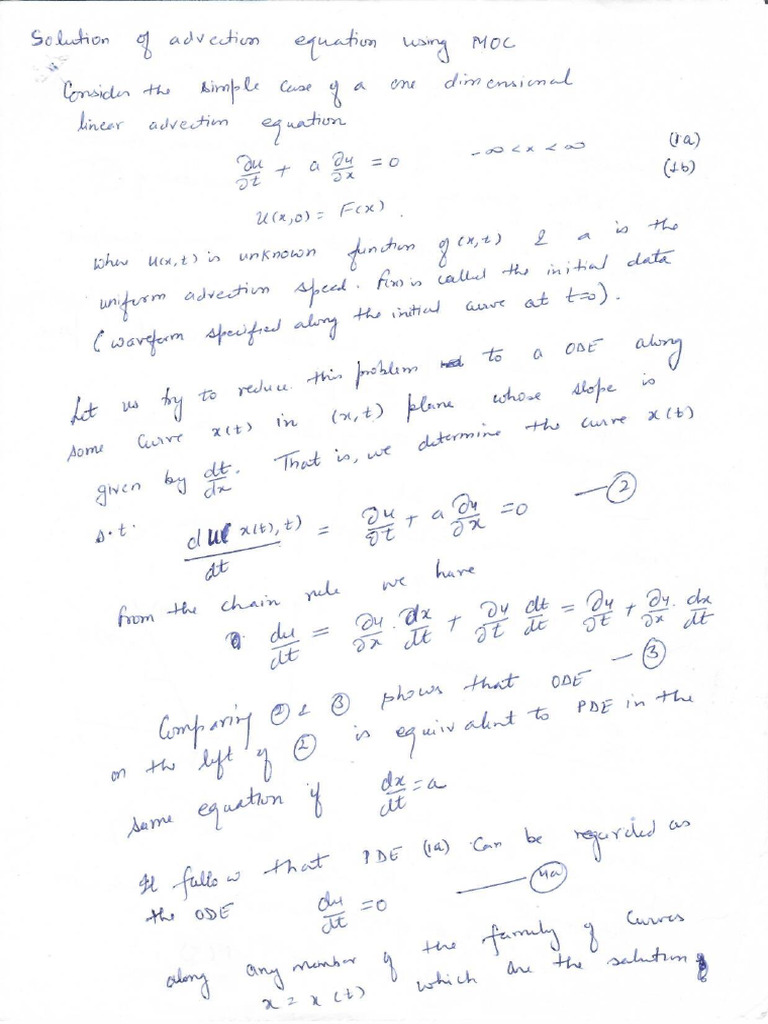 Solution of advection equation using MOC
Consider the simple case of a one dimensional
linear advection equation
∂u/∂t + a ∂u/∂x = 0    -∞ < x < ∞    (1a)
u(x,0) = F(x).    (1b)
wher u(x,t) is unknown function of (x,t) & a is the
uniform advection speed. F(x) is called the initial data
(waveform specified along the initial curve at t=0).
Let us try to reduce this problem to a ODE along
some curve x(t) in (x,t) plane whose slope is
given by dt/dx. That is, we determine the curve x(t)
s.t. du(x(t),t)/dt = ∂u/∂t + a ∂u/∂x = 0 — ②
from the chain rule we have
du/dt = ∂u/∂x · dx/dt + ∂u/∂t dt/dt = ∂u/∂t + ∂u/∂x · dx/dt
— ③
Comparing ② & ③ shows that ODE
on the left of ② is equivalent to PDE in the
same equation if dx/dt = a
It follow that PDE (1a) can be regarded as
the ODE du/dt = 0 — (4a)
along any member of the family of curves
x = x(t) which are the solution